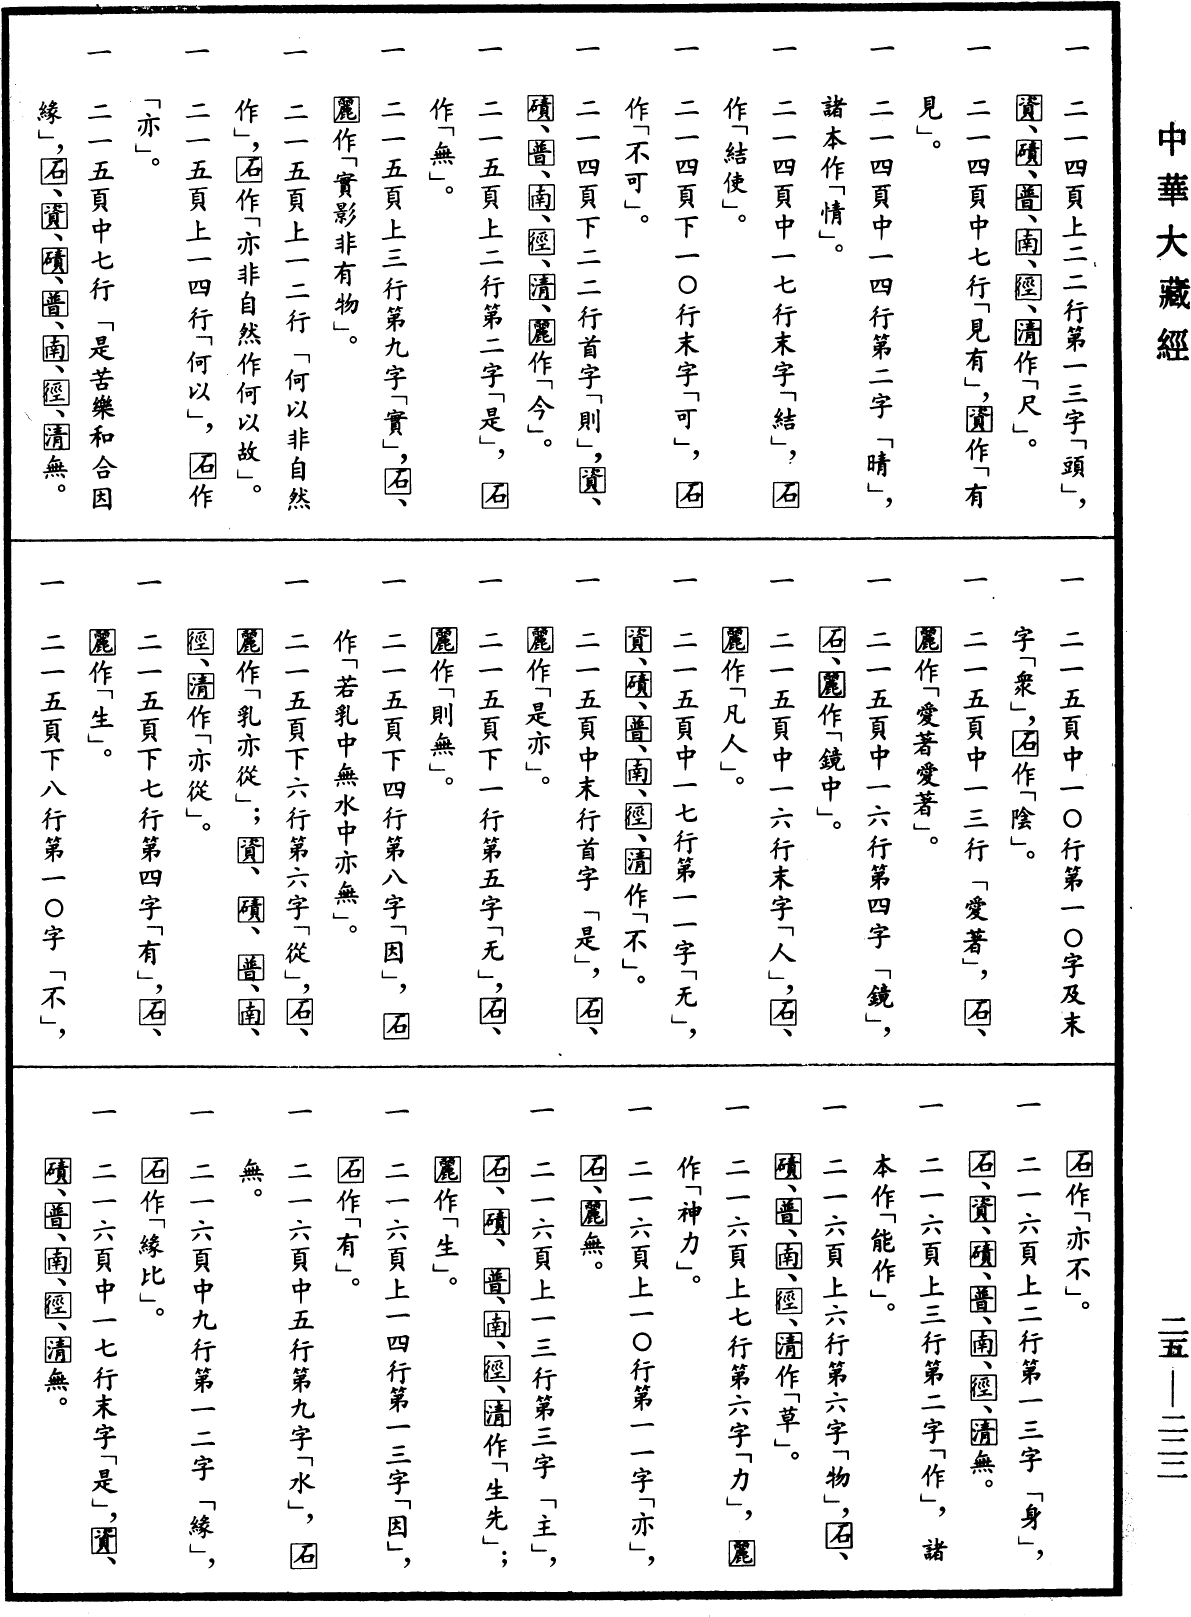 中華大藏經
一　二一四頁上二二行第一三字「頭」，
資、磧、普、南、徑、清作「尺」。
一　二一四頁中七行「見有」，資作「有
見」。
一　二一四頁中一四行第二字「晴」，
諸本作「情」。
一　二一四頁中一七行末字「結」，石
作「結使」。
一　二一四頁下一〇行末字「可」，石
作「不可」。
一　二一四頁下二二行首字「則」，資、
磧、普、南、徑、清、麗作「今」。
一　二一五頁上二行第二字「是」，石
作「無」。
一　二一五頁上三行第九字「實」，石、
麗作「實影非有物」。
一　二一五頁上一二行「何以非自然
作」，石作「亦非自然作何以故」。
一　二一五頁上一四行「何以」，石作
「亦」。
一　二一五頁中七行「是苦樂和合因
緣」，石、資、磧、普、南、徑、清無。
一　二一五頁中一〇行第一〇字及末
字「衆」，石作「陰」。
一　二一五頁中一三行「愛著」，石、
麗作「愛著愛著」。
一　二一五頁中一六行第四字「鏡」，
石、麗作「鏡中」。
一　二一五頁中一六行末字「人」，石、
麗作「凡人」。
一　二一五頁中一七行第一一字「无」，
資、磧、普、南、徑、清作「不」。
一　二一五頁中末行首字「是」，石、
麗作「是亦」。
一　二一五頁下一行第五字「无」，石、
麗作「則無」。
一　二一五頁下四行第八字「因」，石
作「若乳中無水中亦無」。
一　二一五頁下六行第六字「從」，石、
麗作「乳亦從」；資、磧、普、南、
徑、清作「亦從」。
一　二一五頁下七行第四字「有」，石、
麗作「生」。
一　二一五頁下八行第一〇字「不」，
石作「亦不」。
一　二一六頁上二行第一三字「身」，
石、資、磧、普、南、徑、清無。
一　二一六頁上三行第二字「作」，諸
本作「能作」。
一　二一六頁上六行第六字「物」，石、
磧、普、南、徑、清作「草」。
一　二一六頁上七行第六字「力」，麗
作「神力」。
一　二一六頁上一〇行第一一字「亦」，
石、麗無。
一　二一六頁上一三行第三字「主」，
石、磧、普、南、徑、清作「生先」；
麗作「生」。
一　二一六頁上一四行第一三字「因」，
石作「有」。
一　二一六頁中五行第九字「水」，石
無。
一　二一六頁中九行第一二字「緣」，
石作「緣比」。
一　二一六頁中一七行末字「是」，資、
磧、普、南、徑、清無。
二五——二二二